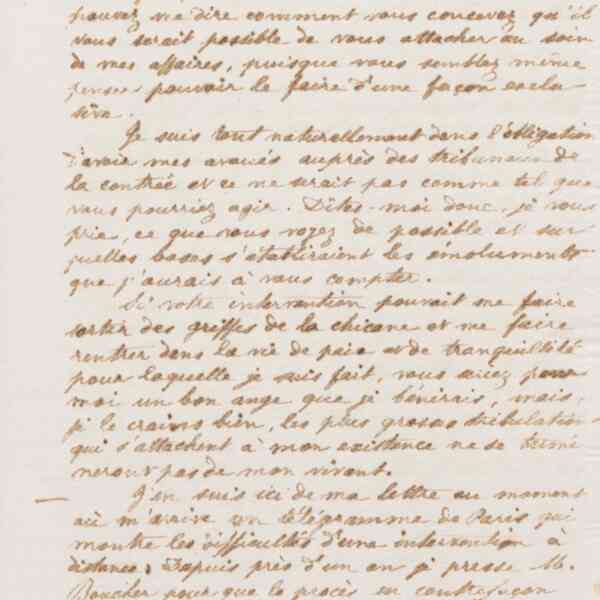 pouvez me dire comment vous concevez qu'il
vous serait possible de vous attacher au soin
de mes affaires, puisque vous semblez même
penser pouvoir le faire d'une façon exclu-
sive.
Je suis tout naturellement dans l'obligation
d'avoir mes avoués auprès des tribunaux de
la contrée et ce ne serait pas comme tel que
vous pourriez agir. Dites-moi donc, je vous
prie, ce que vous voyez de possible et sur
quelles bases s'établiraient les émoluments
que j'aurais à vous compter.
Si votre intervention pouvait me faire
sortir des griffes de la chicane et me faire
rentrer dans la vie de paix et de tranquillité
pour laquelle je suis fait, vous seriez pour
moi un bon ange que je bénirais, mais,
je le crains bien, les plus grosses tribulations
qui s'attachent à mon existence ne se termi
neront pas de mon vivant.
J'en suis ici de ma lettre au moment
où m'arrive un télégramme de Paris qui
montre les difficultés d'une intervention à
distance. Depuis près d'un an je presse M.
Boucher pour que le procès en contrefaçon